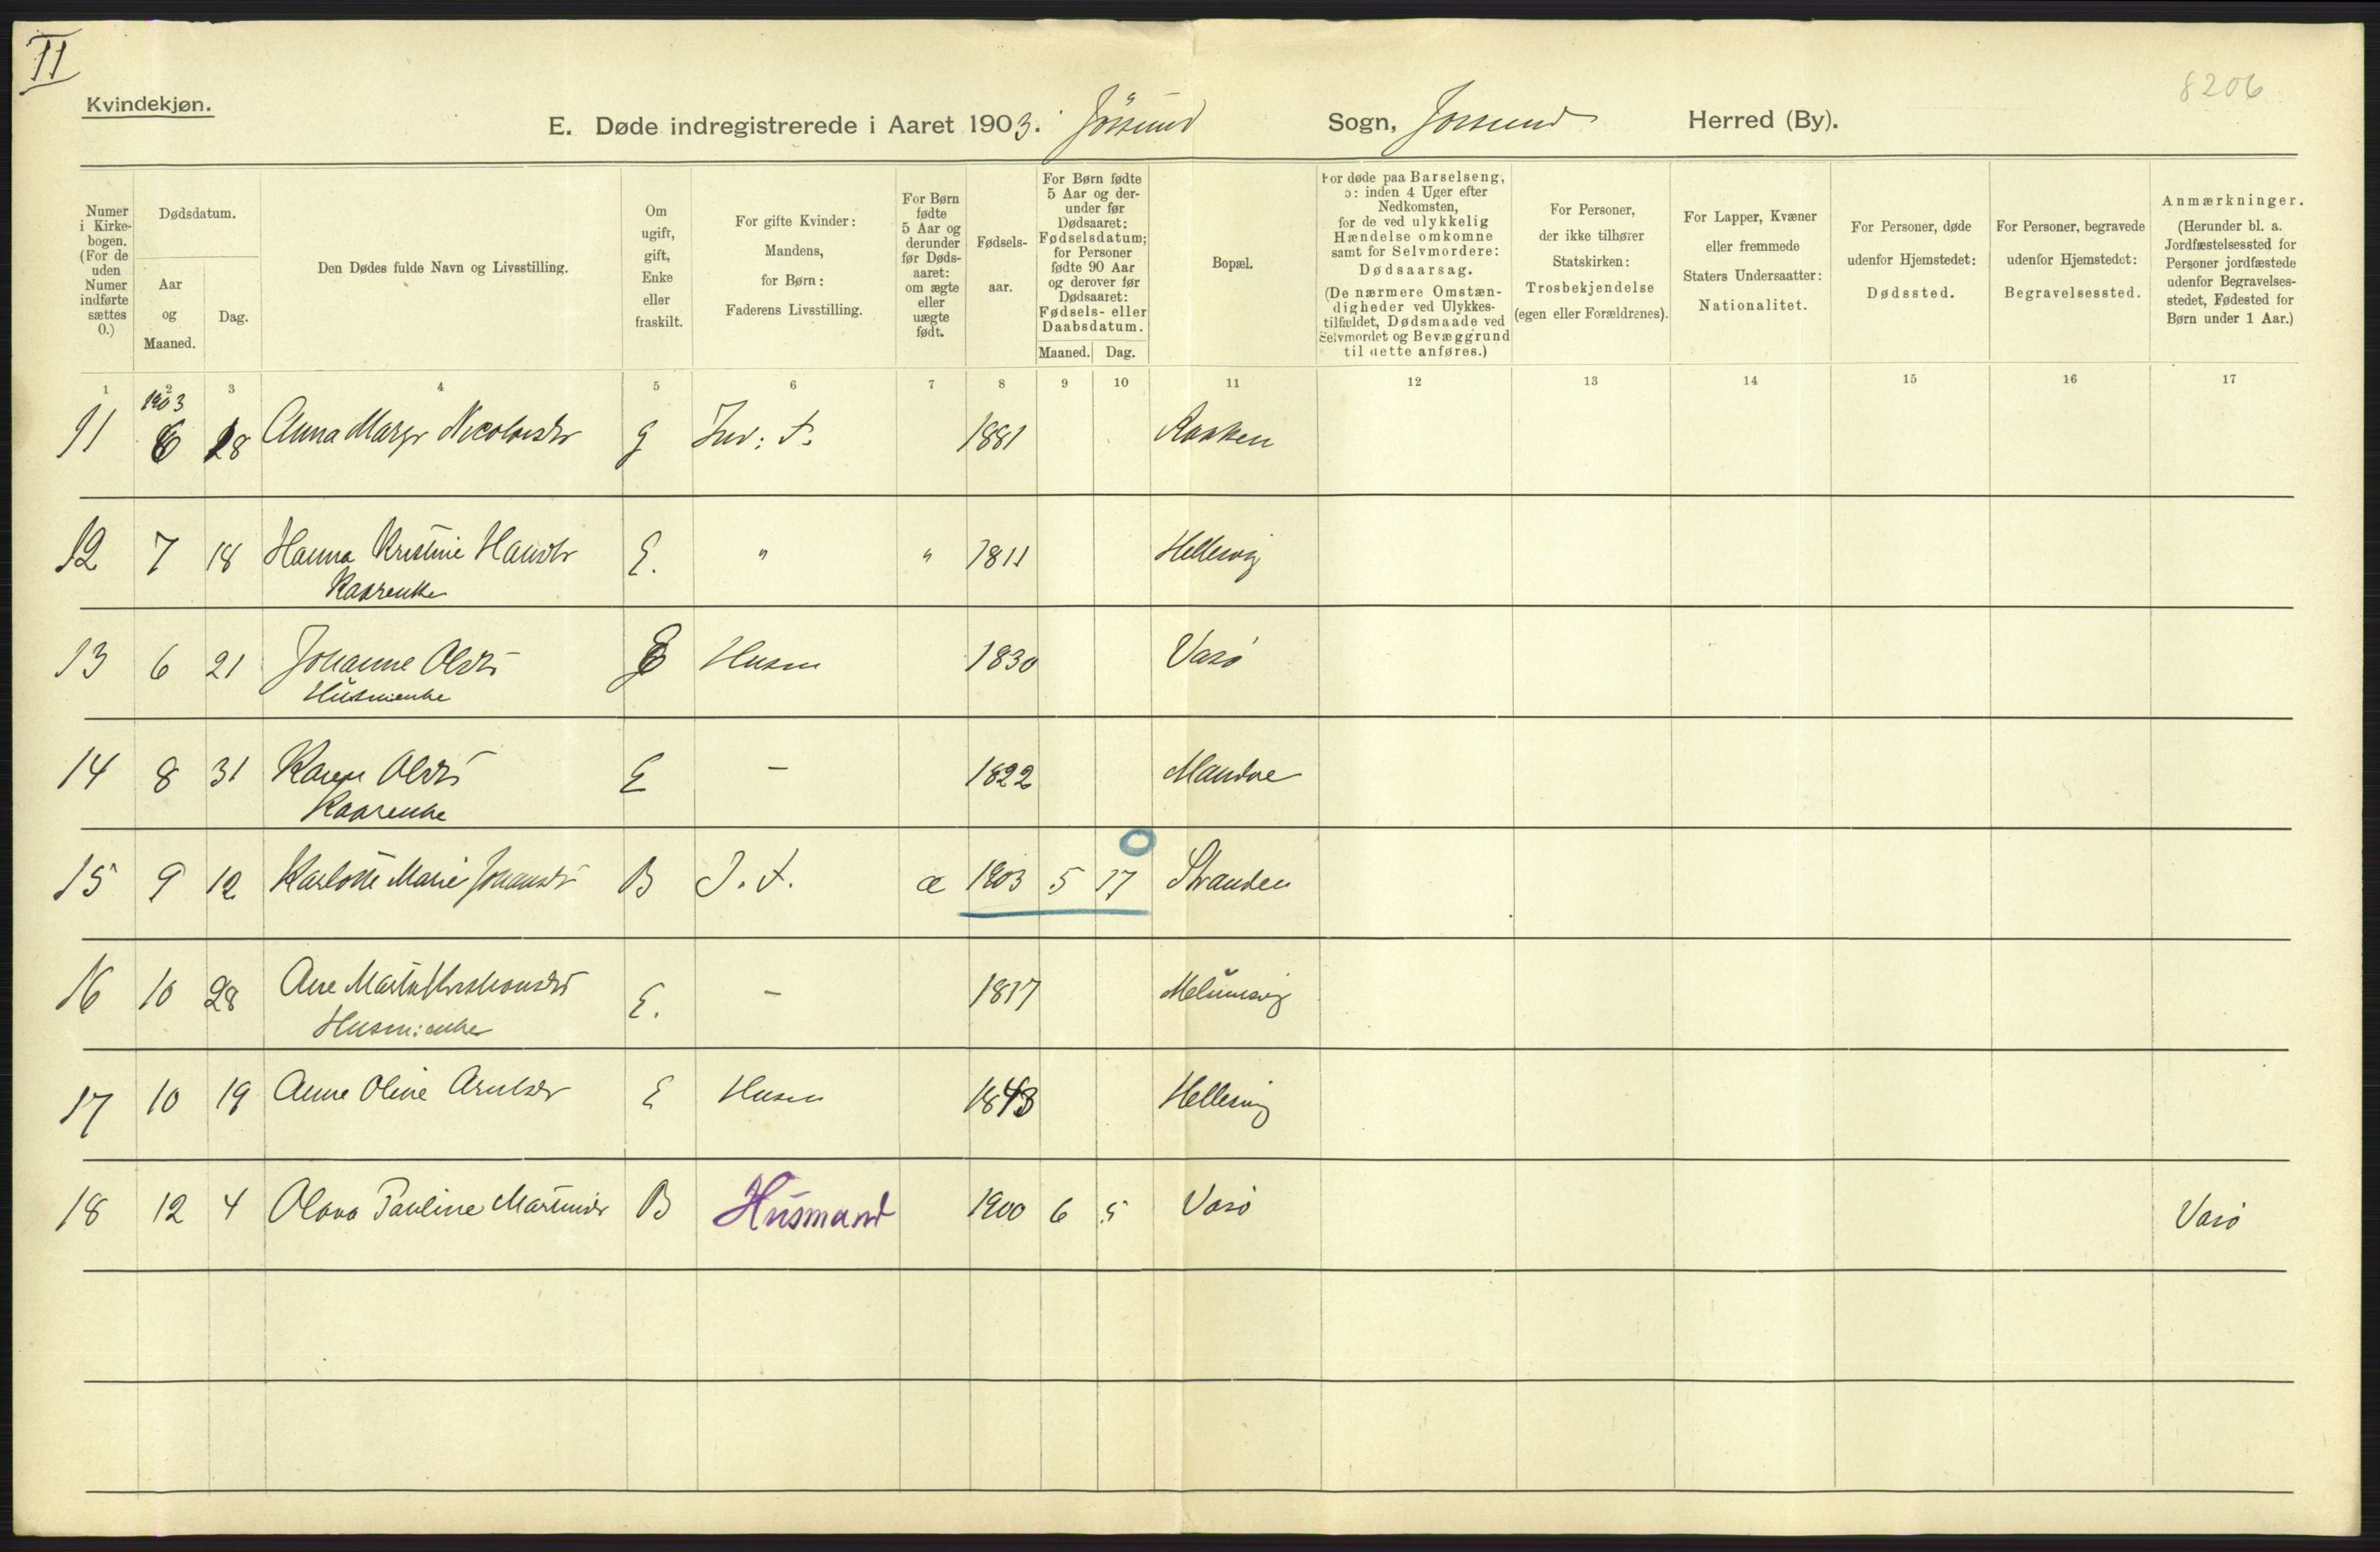 II
8206
Kvindekjøn.
E. Døde indregistrerede i Aaret 1903. Jössund Sogn, Jossund Herred (By).
Numer i Kirkebogen. (For de uden Numer indførte sættes 0.)
Dødsdatum.
Aar og Maaned.
Dag.
Den Dødes fulde Navn og Livsstilling.
Om ugift, gift, Enke eller fraskilt.
For gifte Kvinder: Mandens, for Børn: Faderens Livsstilling.
For Børn fødte 5 Aar og derunder før Dødsaaret: om ægte eller uægte født.
Fødselsaar.
For Børn fødte 5 Aar og derunder før Dødsaaret: Fødselsdatum; for Personer fødte 90 Aar og derover før Dødsaaret: Fødsels- eller Daabsdatum.
Maaned. Dag.
Bopæl.
For døde paa Barselseng, ɔ: inden 4 Uger efter Nedkomsten, for de ved ulykkelig Hændelse omkomne samt for Selvmordere: Dødsaarsag. (De nærmere Omstændigheder ved Ulykkestilfældet, Dødsmaade ved Selvmordet og Bevæggrund til dette anføres.)
For Personer, der ikke tilhører Statskirken: Trosbekjendelse (egen eller Forældrenes).
For Lapper, Kvæner eller fremmede Staters Undersaatter: Nationalitet.
For Personer, døde udenfor Hjemstedet: Dødssted.
For Personer, begravede udenfor Hjemstedet: Begravelsessted.
Anmærkninger. (Herunder bl. a. Jordfæstelsessted for Personer jordfæstede udenfor Begravelsesstedet, Fødested for Børn under 1 Aar.)
1 2 3 4 5 6 7 8 9 10 11 12 13 14 15 16 17
1903
11 6 28 Anna Margr Nicolaisdr g 1881
12 7 18 Hanna Kristine Hansdr E. " " 1811 Hellesvig
Kaarenke
13 6 21 Johanne Olsdr E Husm 1830 Vasø
Husmenke
14 8 31 Karen Olsdr E – 1822
Kaarenke
15 9 12 Karlotte Marie Johansdr B I. F. æ 1903 5 17 Stranden
16 10 28 Ane Marta Kristiansdr E. – 1817
Husm:enke
17 10 19 Anne Oline Arntsdr E Husm 1843 Hellesvig
18 12 4 Olava Pauline Martinsdr B Husmand 1900 6 5 Vasø Vasø